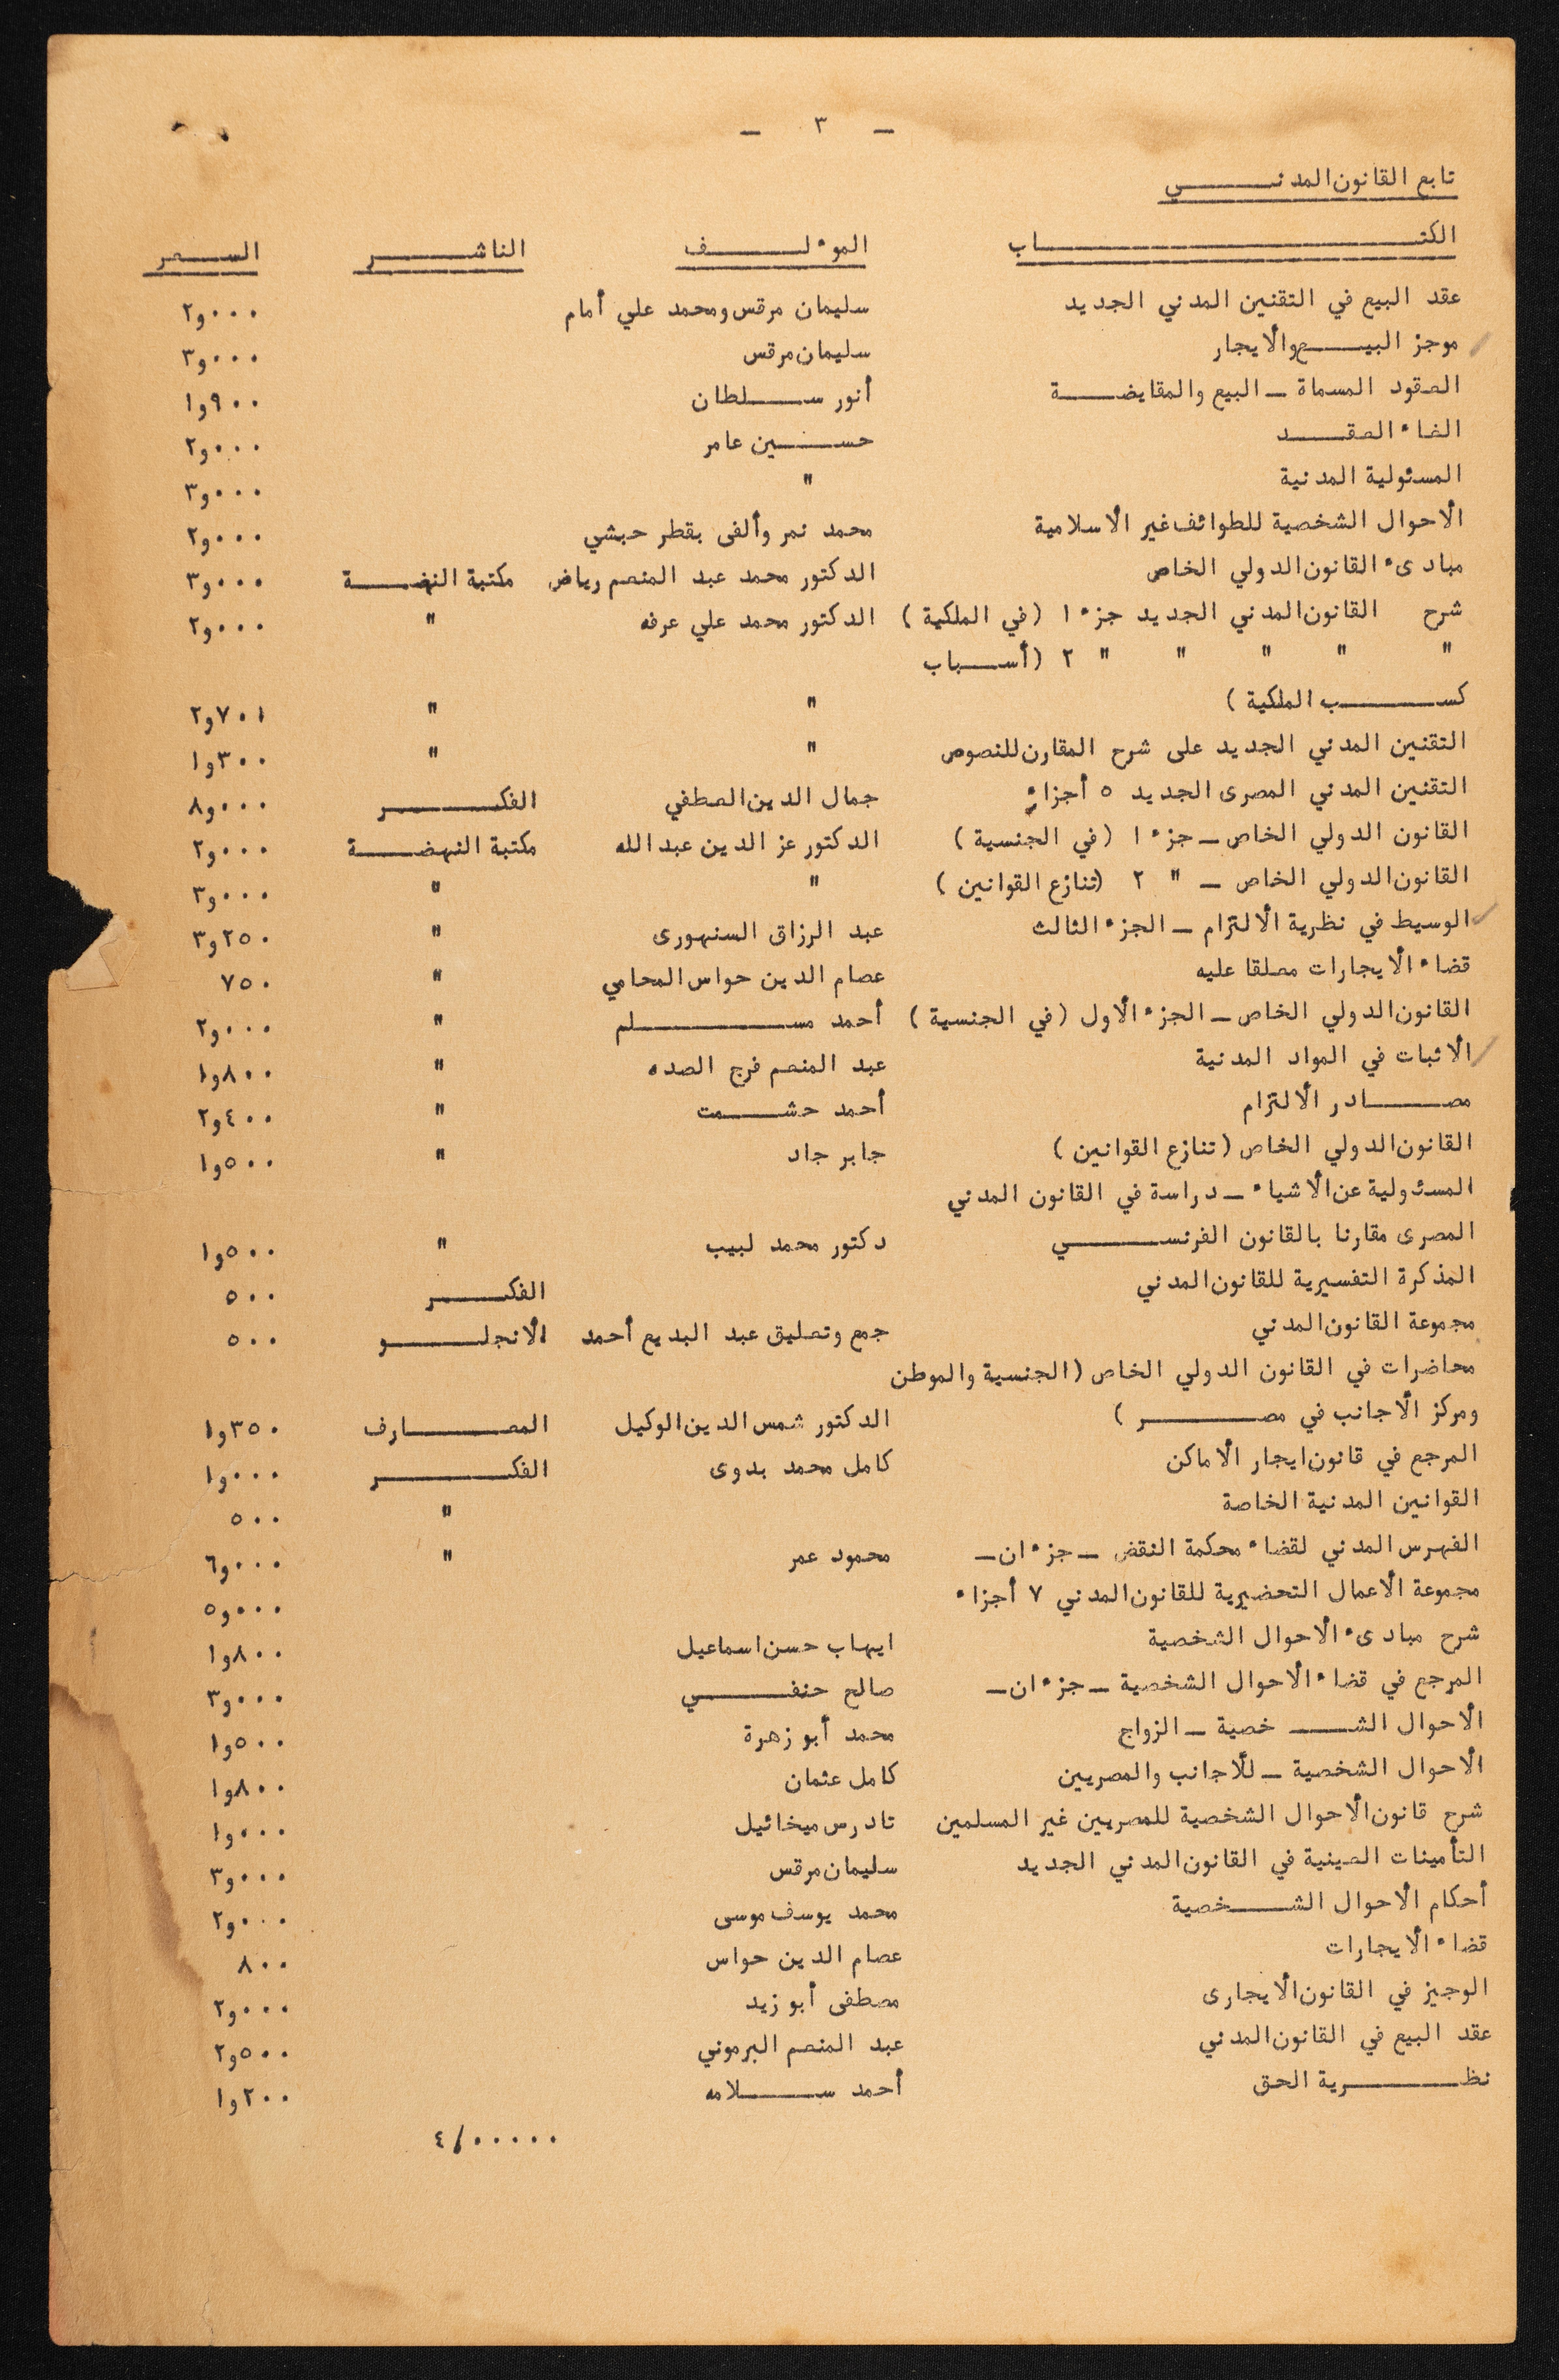 — ٣ —
تابع القانون المدني
الكتاب الموٴلف الناشر السعر
عقد البيع في التقنين المدني الجديد سليمان مرقس ومحمد علي أمام ٢و٠٠٠
موجز البيع والأيجار سليمان مرقس ٣و٠٠٠
العقود المسماة – البيع والمقايضة أنور سلطان ١و٩٠٠
الغاء العقد حسين عامر ٢و٠٠٠
المسئولية المدنية " ٣و٠٠٠
الأحوال الشخصية للطوائف غير الأسلامية محمد نمر وألفى بقطر حبشي ٢و٠٠٠
مبادىء القانون الدولي الخاص الدكتور محمد عبد المنعم رياض مكتبة النهضة ٣و٠٠٠
شرح القانون المدني الجديد جزء ١ (في الملكية) الدكتور محمد علي عرفه " ٢و٠٠٠
" " " " " ٢ (أسباب
كسب الملكية) " " ٢و٧٠١
التقنين المدني الجديد على شرح المقارن للنصوص " " ١و٣٠٠
التقنين المدني المصرى الجديد ٥ أجزاء جمال الدين العطفي الفكر ٨و٠٠٠
القانون الدولي الخاص – جزء ١ (في الجنسية) الدكتور عز الدين عبد الله مكتبة النهضة ٢و٠٠٠
القانون الدولي الخاص – " ٢ (تنازع القوانين) " " ٣و٠٠٠
الوسيط في نظرية الألتزام – الجزء الثالث عبد الرزاق السنهورى " ٣و٢٥٠
قضاء الأيجارات معلقا عليه عصام الدين حواس المحامي " ٧٥٠
القانون الدولي الخاص – الجزء الأول (في الجنسية) أحمد مسلم " ٢و٠٠٠
الأثبات في المواد المدنية عبد المنعم فرج الصده " ١و٨٠٠
مصادر الألتزام أحمد حشمت " ٢و٤٠٠
القانون الدولي الخاص (تنازع القوانين) جابر جاد " ١و٥٠٠
المسئولية عن الأشياء – دراسة في القانون المدني
المصرى مقارنا بالقانون الفرنسي دكتور محمد لبيب " ١و٥٠٠
المذكرة التفسيرية للقانون المدني الفكر ٥٠٠
مجموعة القانون المدني جمع وتعليق عبد البديع أحمد الأنجلو ٥٠٠
محاضرات في القانون الدولي الخاص (الجنسية والموطن
ومركز الأجانب في مصر) الدكتور شمس الدين الوكيل المعارف ١و٣٥٠
المرجع في قانون ايجار الأماكن كامل محمد بدوى الفكر ١و٠٠٠
القوانين المدنية الخاصة " ٥٠٠
الفهرس المدني لقضاء محكمة النقض – جزءان – محمود عمر " ٦و٠٠٠
مجموعة الأعمال التحضيرية للقانون المدني ٧ أجزاء ٥و٠٠٠
شرح مبادىء الأحوال الشخصية ايهاب حسن اسماعيل ١و٨٠٠
المرجع في قضاء الأحوال الشخصية – جزءان – صالح حنفي ٣و٠٠٠
الأحوال الشخصية – الزواج محمد أبو زهرة ١و٥٠٠
الأحوال الشخصية – للأجانب والمصريين كامل عثمان ١و٨٠٠
شرح قانون الأحوال الشخصية للمصريين غير المسلمين تادرس ميخائيل ١و٠٠٠
التأمينات العينية في القانون المدني الجديد سليمان مرقس ٣و٠٠٠
أحكام الأحوال الشخصية محمد يوسف موسى ٢و٠٠٠
قضاء الأيجارات عصام الدين حواس ٨٠٠
الوجيز في القانون الأيجارى مصطفى أبو زيد ٢و٠٠٠
عقد البيع في القانون المدني عبد المنعم البرموني ٢و٥٠٠
نظرية الحق أحمد سلامه ١و٢٠٠
٤/٠٠٠٠٠